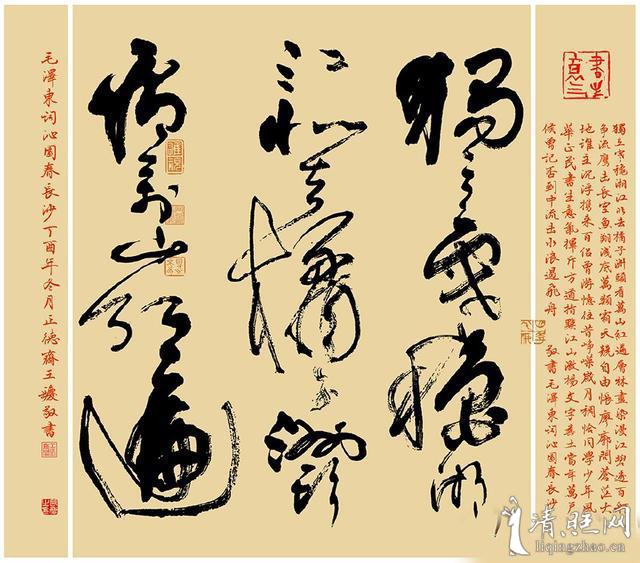 獨立寒秋湘江北去橘子洲頭看萬山紅遍層林盡染漫江碧透百舸
爭流鷹击長空魚翔淺底萬類霜天競自由悵寥廓問蒼茫大
地誰主沉浮携來百侶曾游憶往昔崢嶸歲月稠恰同學少年風
華正茂書生意氣揮斥方遒指點江山激揚文字糞土當年萬戶
侯曾記否到中流击水浪遏飛舟 敬書毛澤東詞沁園春長沙
獨立寒秋湘
江北去橘子洲頭
看萬山紅遍
毛澤東詞沁園春長沙丁酉年冬月正德齋王敬書
清照网
liqingzhao.cn